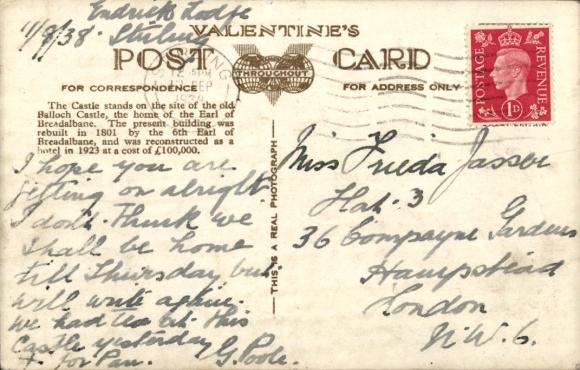 Endrick Lodge
11/9/38. Stirling
VALENTINE'S
POST CARD
THROUGHOUT
FOR CORRESPONDENCE
FOR ADDRESS ONLY
The Castle stands on the site of the old
Balloch Castle, the home of the Earl of
Breadalbane. The present building was
rebuilt in 1801 by the 6th Earl of
Breadalbane, and was reconstructed as a
hotel in 1923 at a cost of £100,000.
I hope you are
getting on alright
I don't think we
shall be home
till Thursday but
will write again.
We had tea at this
Castle yesterday
+ for Pan. G. Poole.
THIS IS A REAL PHOTOGRAPH
POSTAGE
REVENUE
1D
Miss Frieda Jasser
Flat. 3
36 Compayne Gardens
Hampstead
London
N.W.6.